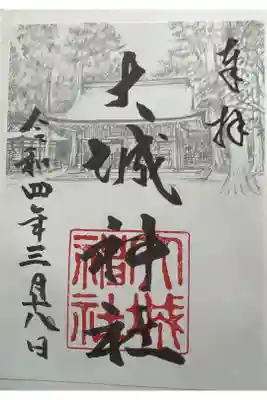 奉拝
大城神社
大城
神社
令和四年三月十八日